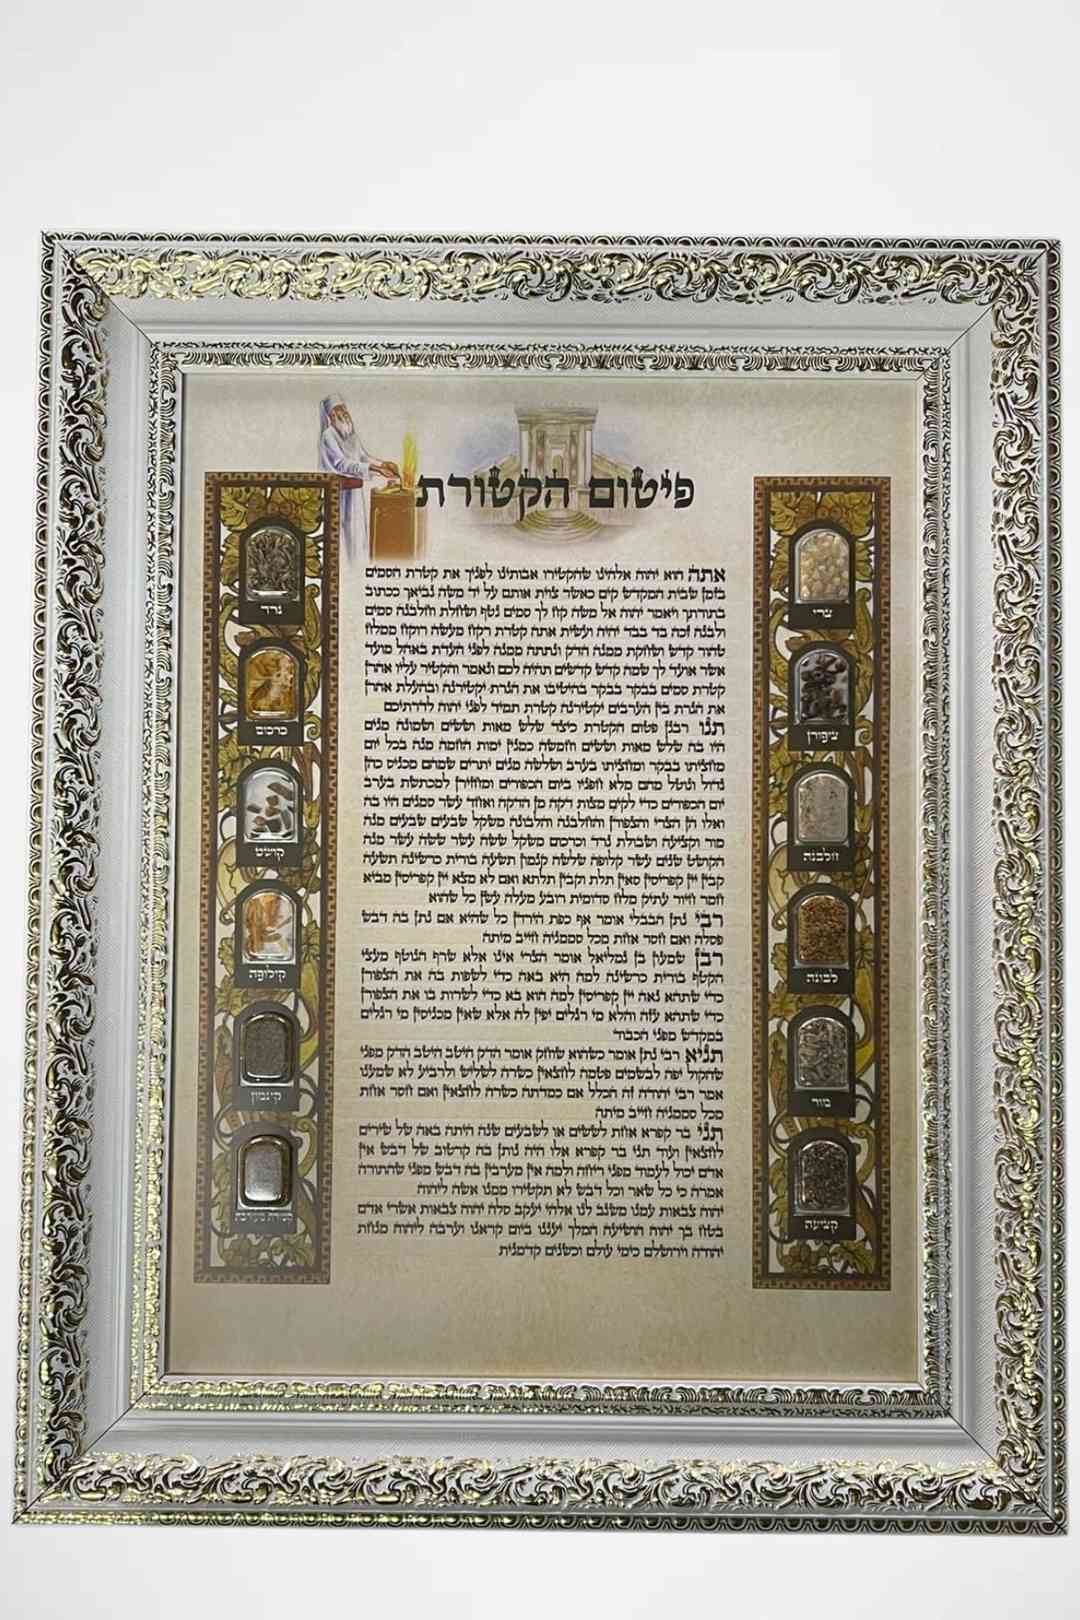 פיטום הקטורת
אתה הוא יהוה אלהינו שהקטירו אבותינו לפניך את קטרת הסמים
בזמן שבית המקדש קים כאשר צוית אותם על יד משה נביאך ככתוב
בתורתך ויאמר יהוה אל משה קח לך סמים נטף ושחלת וחלבנה סמים
ולבנה זכה בד בבד יהיה ועשית אתה קטרת רקח מעשה רוקח ממלח
טהור קדש ושחקת ממנה הדק ונתתה ממנה לפני העדת באהל מועד
אשר אועד לך שמה קדש קדשים תהיה לכם ונאמר והקטיר עליו אהרן
קטרת סמים בבקר בבקר בהיטיבו את הנרת יקטירנה ובהעלת אהרן
את הנרת בין הערבים יקטירנה קטרת תמיד לפני יהוה לדרתיכם
תנו רבנן פטום הקטרת כיצד שלש מאות וששים ושמונה מנים
היו בה שלש מאות וששים וחמשה כמנין ימות החמה מנה בכל יום
מחציתו בבקר ומחציתו בערב ושלשה מנים יתרים שמהם מכניס כהן
גדול ונוטל מהם מלא חפניו ביום הכפורים ומחזירן למכתשת בערב
יום הכפורים כדי לקים מצות דקה מן הדקה ואחד עשר סמנים היו בה
ואלו הן הצרי והצפורן והחלבנה והלבונה משקל שבעים שבעים מנה
מור וקציעה ושבולת נרד וכרכם משקל ששה עשר ששה עשר מנה
הקושט שנים עשר קלופה שלשה קנמון תשעה בורית כרשינה תשעה
קבין יין קפריסין סאין תלת וקבין תלתא ואם לא מצא יין קפריסין מביא
חמר חיור עתיק מלח סדומית רובע מעלה עשן כל שהוא
רבי נתן הבבלי אומר אף כפת הירדן כל שהיא אם נתן בה דבש
פסלה ואם חסר אחת מכל סממניה חייב מיתה
רבן שמעון בן גמליאל אומר הצרי אינו אלא שרף הנוטף מעצי
הקטף בורית כרשינה למה היא באה כדי לשפות בה את הצפורן
כדי שתהא נאה יין קפריסין למה הוא בא כדי לשרות בו את הצפורן
כדי שתהא עזה והלא מי רגלים יפין לה אלא שאין מכניסין מי רגלים
במקדש מפני הכבוד
תניא רבי נתן אומר כשהוא שוחק אומר הדק היטב היטב הדק מפני
שהקול יפה לבשמים פטמה לחצאין כשרה לשליש ולרביע לא שמענו
אמר רבי יהודה זה הכלל אם כמדתה כשרה לחצאין ואם חסר אחת
מכל סממניה חייב מיתה
תני בר קפרא אחת לששים או לשבעים שנה היתה באה של שירים
לחצאין ועוד תני בר קפרא אלו היה נותן בה קרטוב של דבש אין
אדם יכול לעמוד מפני ריחה ולמה אין מערבין בה דבש מפני שהתורה
אמרה כי כל שאר וכל דבש לא תקטירו ממנו אשה ליהוה
יהוה צבאות עמנו משגב לנו אלהי יעקב סלה יהוה צבאות אשרי אדם
בטח בך יהוה הושיעה המלך יעננו ביום קראנו וערבה ליהוה מנחת
יהודה וירושלם כימי עולם וכשנים קדמנית
צרי
ציפורן
חלבנה
לבונה
מור
קציעה
נרד
כרכום
קושט
קילופה
קינמון